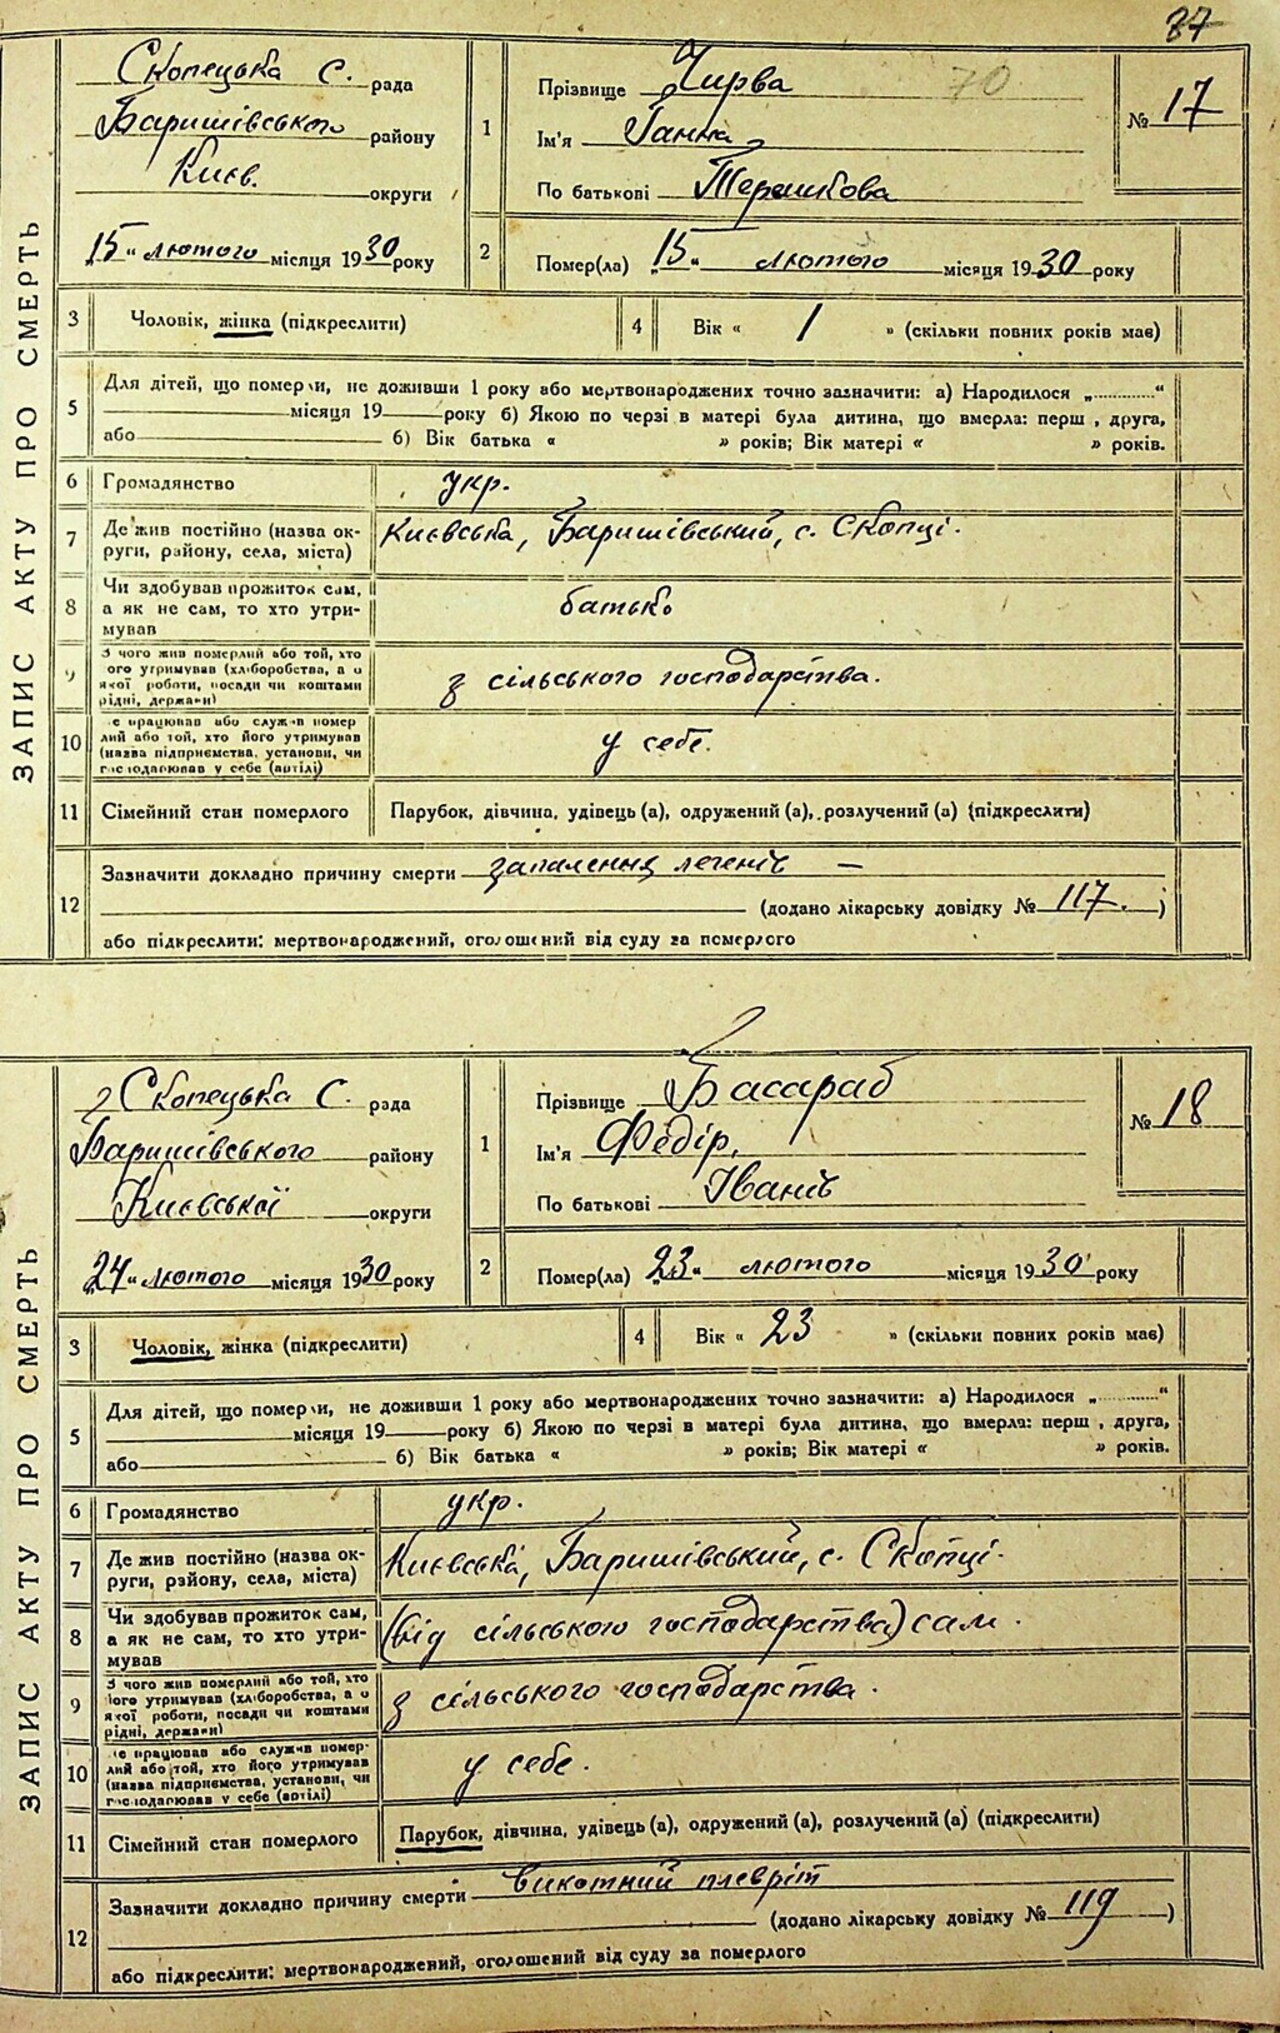 87
70
ЗАПИС АКТУ ПРО СМЕРТЬ
Скопецька С. рада
Баришівського району
Києв. округи
„15“ лютого місяця 1930 року
1 Прізвище Чирва
Ім'я Ганна
По батькові Терешкова
№ 17
2 Помер(ла) „15“ лютого місяця 1930 року
3 Чоловік, жінка (підкреслити)
4 Вік « 1 » (скільки повних років має)
5 Для дітей, що померли, не доживши 1 року або мертвонароджених точно зазначити: а) Народилося „............“
місяця 19 року б) Якою по черзі в матері була дитина, що вмерла: перш , друга,
або б) Вік батька « » років; Вік матері « » років.
6 Громадянство укр.
7 Де жив постійно (назва ок-
руги, району, села, міста) Київська, Баришівський, с. Скопці.
8 Чи здобував прожиток сам,
а як не сам, то хто утри-
мував батько
9 З чого жив померлий або той, хто
ого утримував (хліборобства, а о
якої роботи, посади чи коштами
рідні, держави) з сільського господарства.
10 е працював або служив помер
лий або той, хто його утримував
(назва підприємства, установи, чи
господарював у себе (артілі) у себе.
11 Сімейний стан померлого Парубок, дівчина, удівець (а), одружений (а), розлучений (а) (підкреслити)
12 Зазначити докладно причину смерти запалення легенів —
(додано лікарську довідку № 117. )
або підкреслити: мертвонароджений, оголошений від суду за померлого
ЗАПИС АКТУ ПРО СМЕРТЬ
Скопецька С. рада
Баришівського району
Київської округи
„24“ лютого місяця 1930 року
1 Прізвище Басараб
Ім'я Федір,
По батькові Іванів
№ 18
2 Помер(ла) „23“ лютого місяця 1930 року
3 Чоловік, жінка (підкреслити)
4 Вік « 23 » (скільки повних років має)
5 Для дітей, що померли, не доживши 1 року або мертвонароджених точно зазначити: а) Народилося „............“
місяця 19 року б) Якою по черзі в матері була дитина, що вмерла: перш , друга,
або б) Вік батька « » років; Вік матері « » років.
6 Громадянство укр.
7 Де жив постійно (назва ок-
руги, району, села, міста) Київська, Баришівський, с. Скопці.
8 Чи здобував прожиток сам,
а як не сам, то хто утри-
мував (від сільського господарства) сам.
9 З чого жив померлий або той, хто
його утримував (хліборобства, а о
якої роботи, посади чи коштами
рідні, держави) з сільського господарства.
10 е працював або служив помер-
лий або той, хто його утримував
(назва підприємства, установи, чи
господарював у себе (артілі) у себе.
11 Сімейний стан померлого Парубок, дівчина, удівець (а), одружений (а), розлучений (а) (підкреслити)
12 Зазначити докладно причину смерти викотний плевріт
(додано лікарську довідку № 119 )
або підкреслити: мертвонароджений, оголошений від суду за померлого